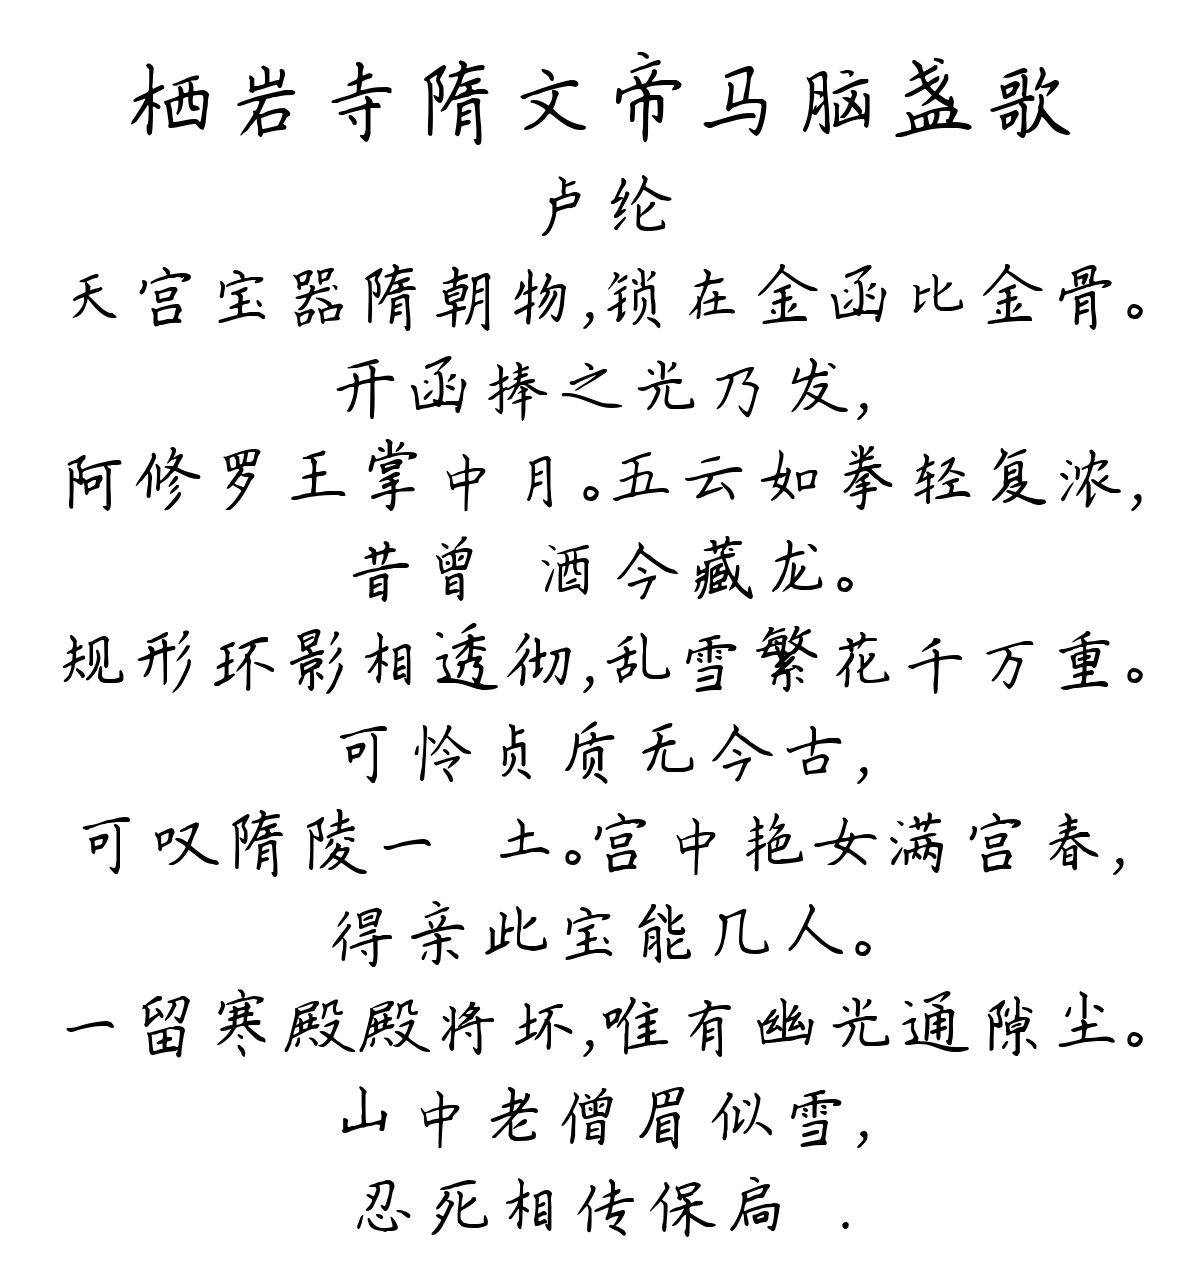 栖岩寺隋文帝马脑盏歌
卢纶
天宫宝器隋朝物,锁在金函比金骨。
开函捧之光乃发,
阿修罗王掌中月。五云如拳轻复浓,
昔曾 酒今藏龙。
规形环影相透彻,乱雪繁花千万重。
可怜贞质无今古,
可叹隋陵一 土。宫中艳女满宫春,
得亲此宝能几人。
一留寒殿殿将坏,唯有幽光通隙尘。
山中老僧眉似雪,
忍死相传保扃 .